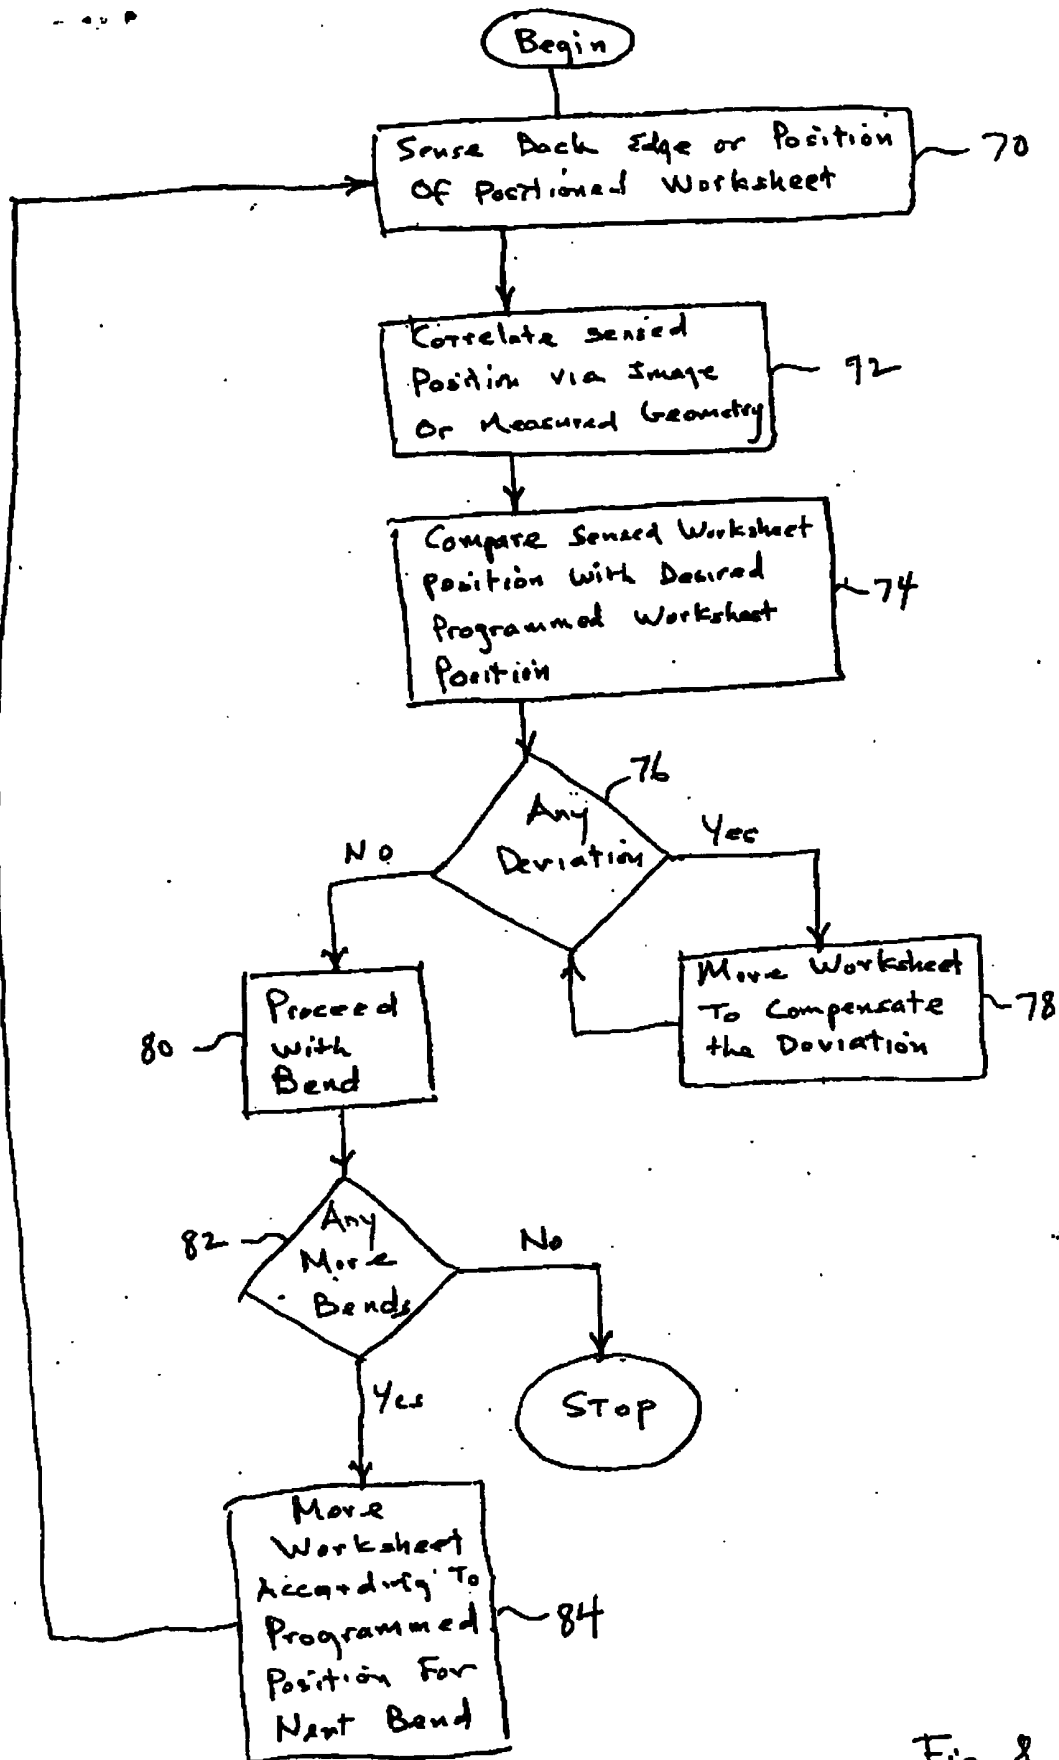 Begin
Sense Back Edge or Position
Of Positioned Worksheet
70
Correlate Sensed
Position via Image
Or Measured Geometry
92
Compare Sensed Worksheet
Position with Desired
Programmed Worksheet
Position
74
76
Any
Deviation
Yes
No
Move Worksheet
To Compensate
the Deviation
78
Proceed
with
Bend
80
82
Any
More
Bends
No
Yes
Stop
Move
Worksheet
According To
Programmed
Position For
Next Bend
84
Fig. 8